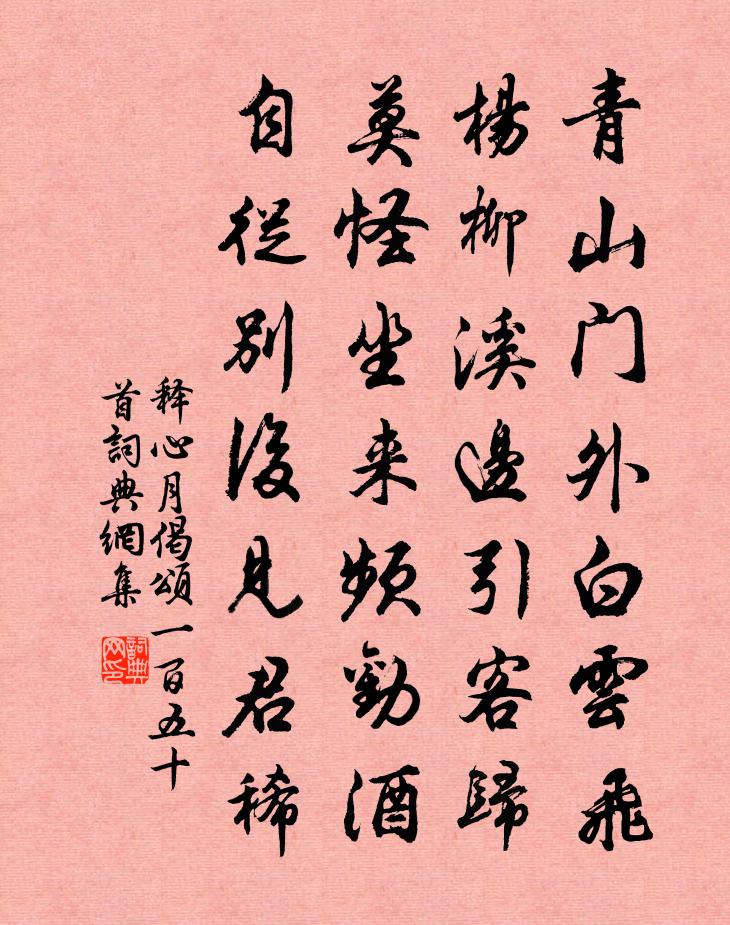 青山門外白雲飛
楊柳溪邊引客歸
莫怪坐来頻勸酒
自從別後見君稀
释心月偈頌一百五十
首詞典網集
詞典網印